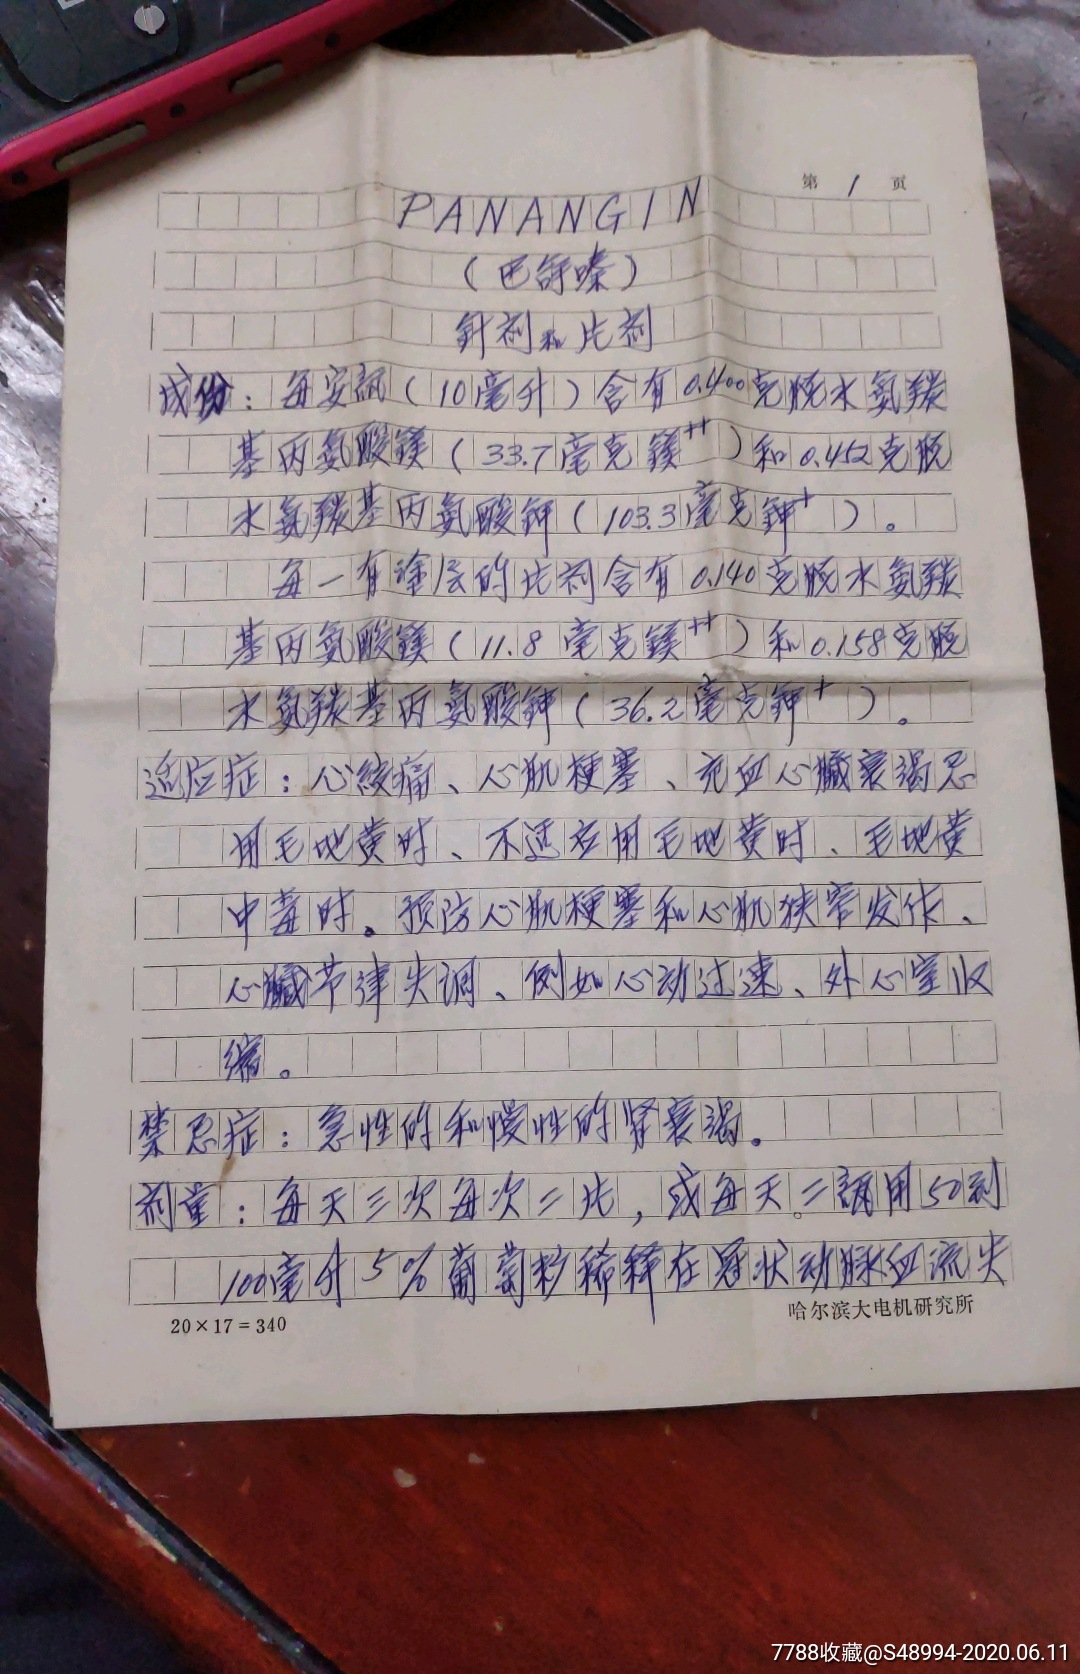 第 1 页
PANANGIN
(巴舒嗪)
针剂和片剂
成份：每安瓿(10毫升)含有0.400克脱水氨羰
基丙氨酸镁(33.7毫克镁++)和0.452克脱
水氨羰基丙氨酸钾(103.3毫克钾+)。
每一有涂层的片剂含有0.140克脱水氨羰
基丙氨酸镁(11.8毫克镁++)和0.158克脱
水氨羰基丙氨酸钾(36.2毫克钾+)。
适应症：心绞痛、心肌梗塞、充血心臟衰竭忌
用毛地黄时、不适应用毛地黄时、毛地黄
中毒时。预防心肌梗塞和心肌狭窄发作、
心臟节律失调、例如心动过速、外心室收
缩。
禁忌症：急性的和慢性的肾衰竭。
剂量：每天三次每次二片，或每天二瓿用50到
100毫升5%葡萄糖稀释在冠状动脉血流失
20×17=340
哈尔滨大电机研究所
7788收藏@S48994-2020.06.11